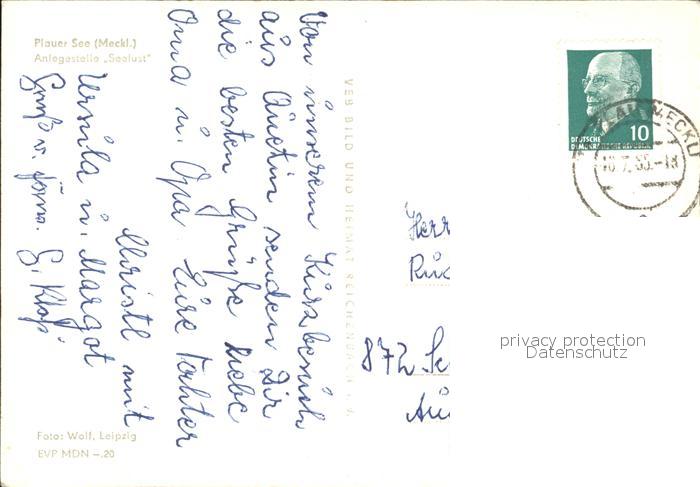 Plauer See (Meckl.)
Anlegestelle „Seelust"
Von unserem Kurzbesuch
aus Quetzin senden Dir
die besten Grüße liebe
Oma u. Opa Eure Tochter
Christl mit
Ursula u. Margot
Gruß v. Fam. G.
VEB BILD UND HEIMAT REICHENBACH i. V.
DEUTSCHE
DEMOKRATISCHE REPUBLIK
10
PLAU (MECKL)
18.7.65.-18
Herr
872
privacy protection
Datenschutz
Foto: Wolf, Leipzig
EVP MDN –.20